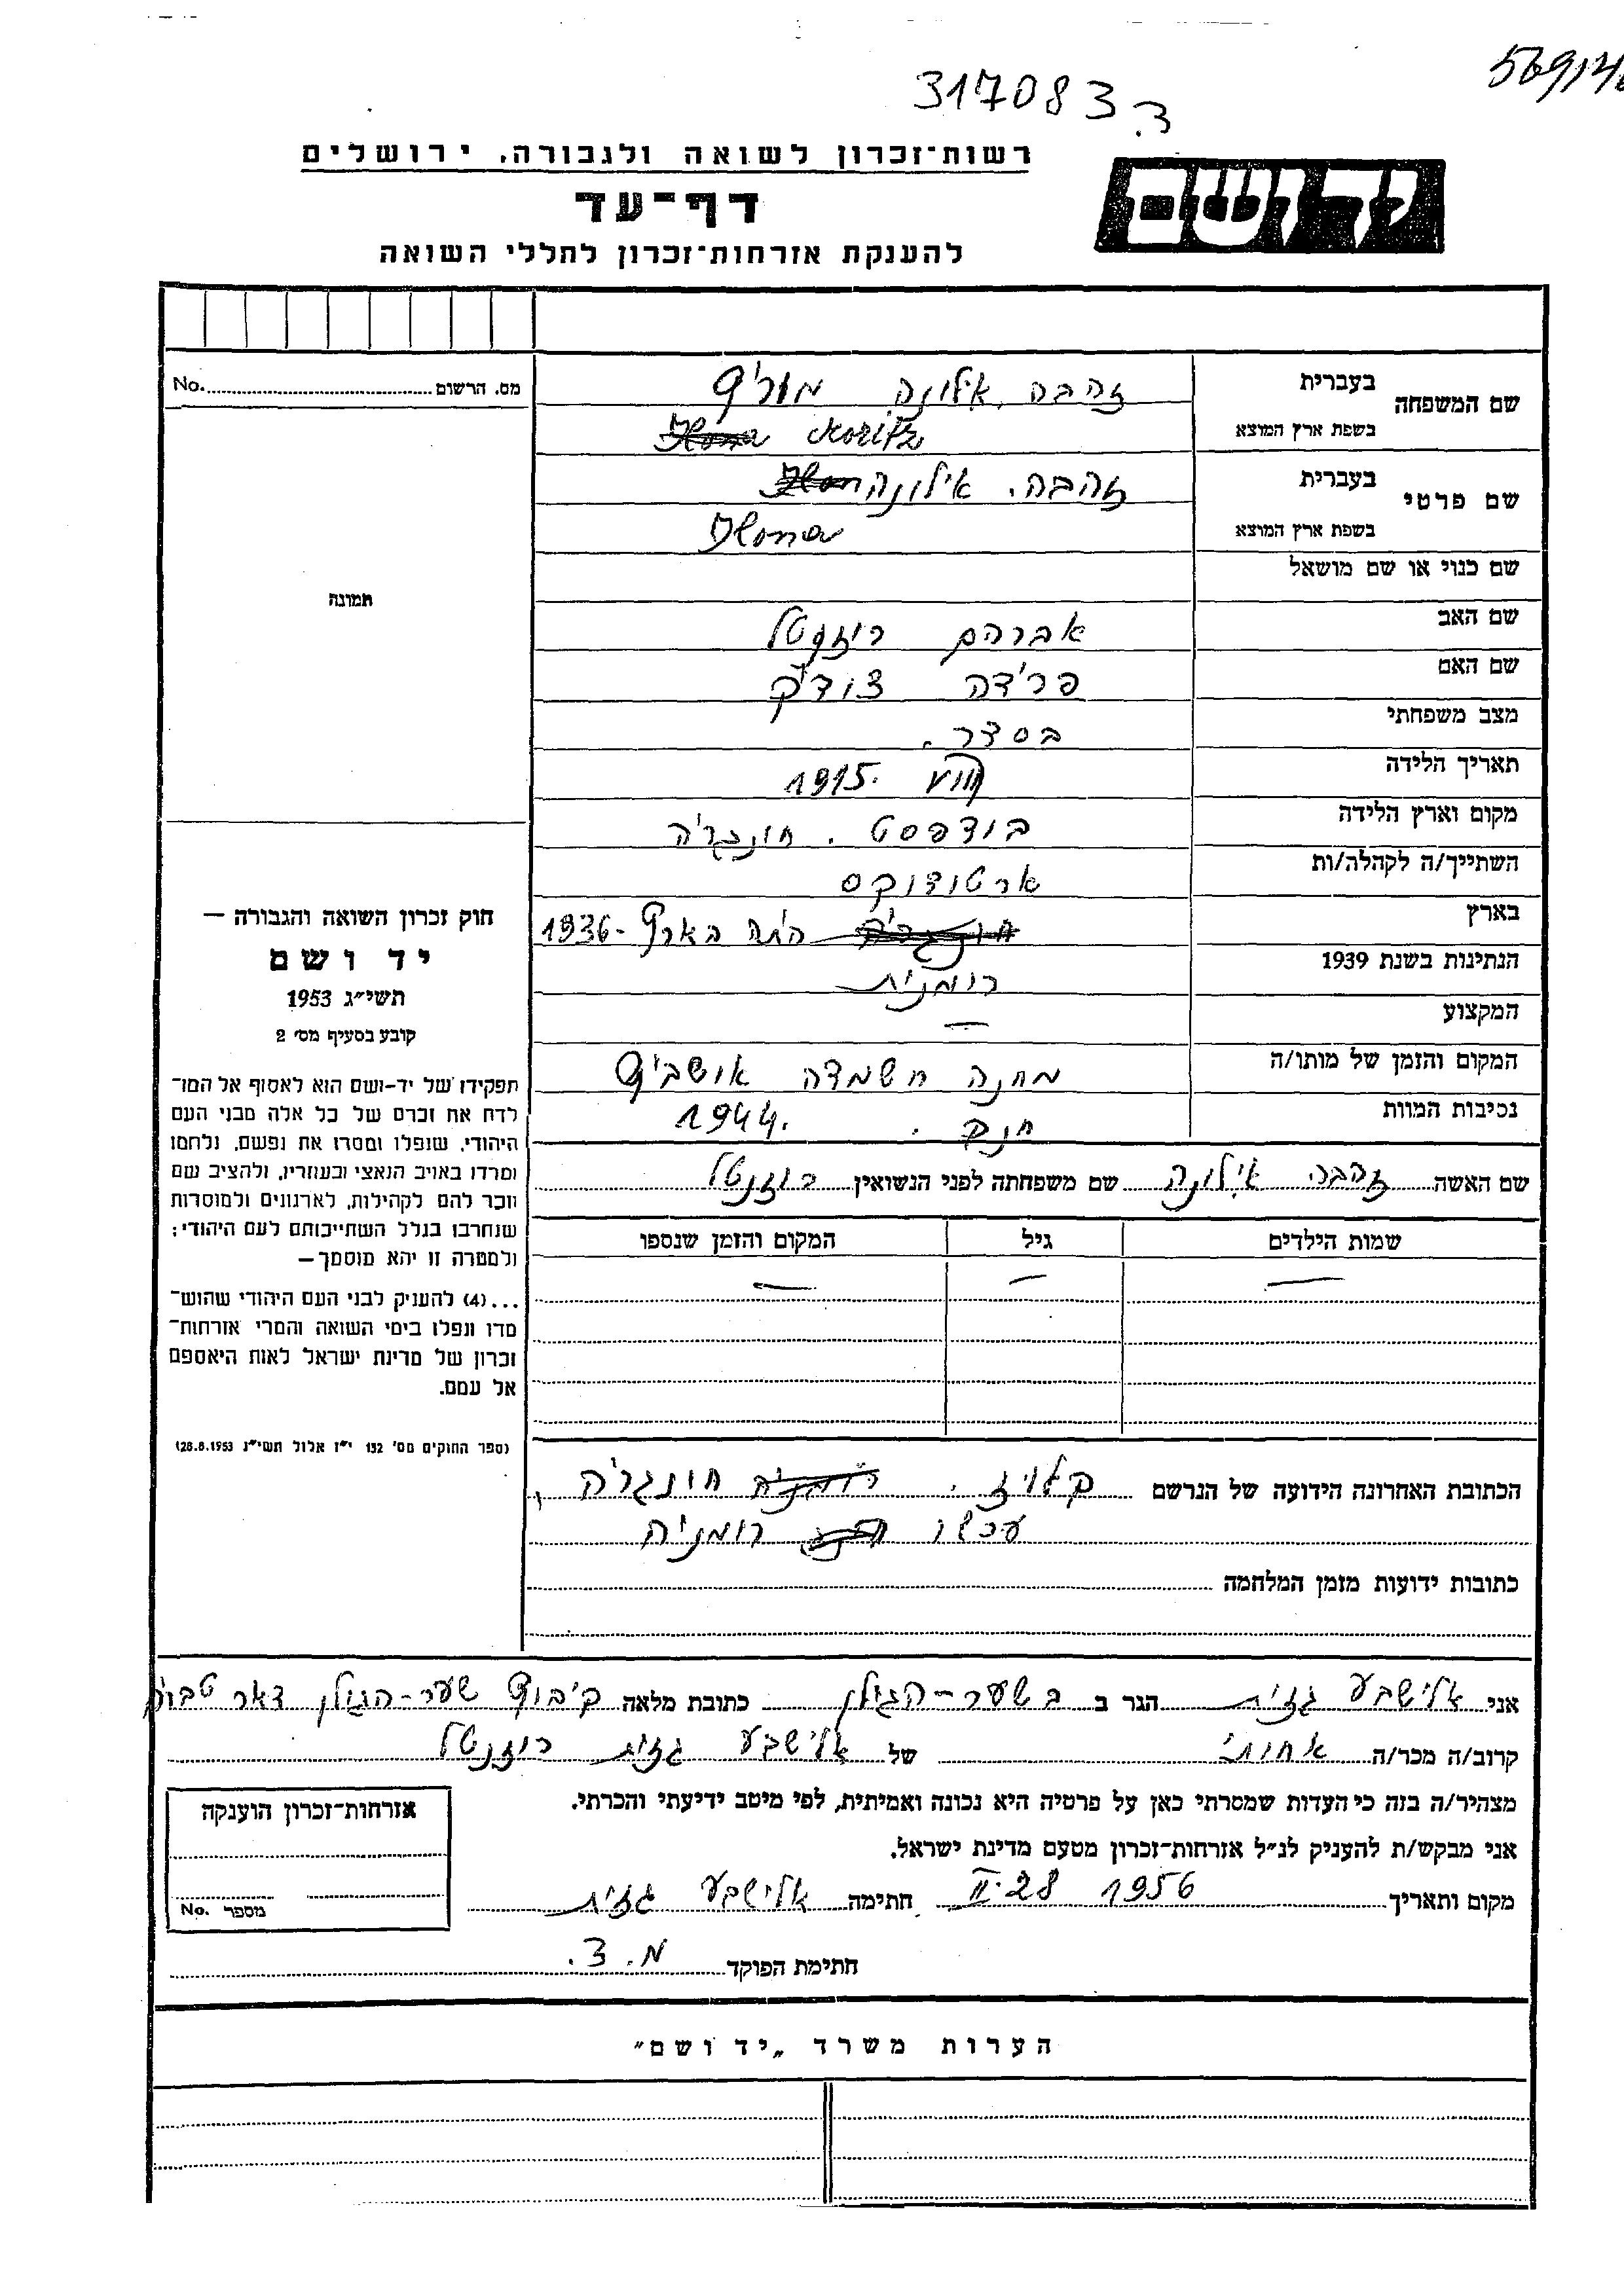 317083 ב.
רשות־זכרון לשואה ולגבורה, ירושלים
דף־עד
להענקת אזרחות־זכרון לחללי השואה
יד ושם
שם המשפחה
בעברית זהבה, אילונה מוריץ
בשפת ארץ המוצא Moritz
שם פרטי
בעברית זהבה, אילונה
בשפת ארץ המוצא Ilona
שם כנוי או שם מושאל
שם האב אברהם רוזנטל
שם האם פרידה צודיק
מצב משפחתי בסדר.
תאריך הלידה 1915.
מקום וארץ הלידה בודפסט. חונגריה
השתייך/ה לקהלה/ות ארטודוקס
בארץ היתה בארץ 1936-
הנתינות בשנת 1939 רומנית
המקצוע —
המקום והזמן של מותו/ה מחנה השמדה אושביץ
נסיבות המוות 1944.
שם האשה זהבה אילונה שם משפחתה לפני הנשואין רוזנטל
שמות הילדים גיל המקום והזמן שנספו
— — —
הכתובת האחרונה הידועה של הנרשם קלויז. רומניה חונגריה,
עכשו רומניה
כתובות ידועות מזמן המלחמה
מס. הרשום No.
תמונה
חוק זכרון השואה והגבורה —
יד ושם
תשי״ג 1953
קובע בסעיף מס׳ 2
תפקידו של יד-ושם הוא לאסוף אל המו־
לדת את זכרם של כל אלה מבני העם
היהודי, שנפלו ומסרו את נפשם, נלחמו
ומרדו באויב הנאצי ובעוזריו, ולהציב שם
וזכר להם לקהילות, לארגונים ולמוסדות
שנחרבו בגלל השתייכותם לעם היהודי;
ולמטרה זו יהא מוסמך—
...(4) להעניק לבני העם היהודי שהוש־
מדו ונפלו בימי השואה והמרי אזרחות־
זכרון של מדינת ישראל לאות היאספם
אל עמם.
(ספר החוקים מס׳ 132 י״ז אלול תשי״ג 28.8.1953)
אני אלישבע גזית הגר ב בשער-הגולן כתובת מלאה קיבוץ שער-הגולן דאר
קרוב/ה מכר/ה אחותי של אלישבע גזית רוזנטל
מצהיר/ה בזה כי העדות שמסרתי כאן על פרטיה היא נכונה ואמיתית, לפי מיטב ידיעתי והכרתי.
אני מבקש/ת להעניק לנ״ל אזרחות־זכרון מטעם מדינת ישראל.
מקום ותאריך 1956 28.II חתימה אלישבע גזית
חתימת הפוקד מ. צ.
אזרחות־זכרון הוענקה
מספר No.
הערות משרד „יד ושם״